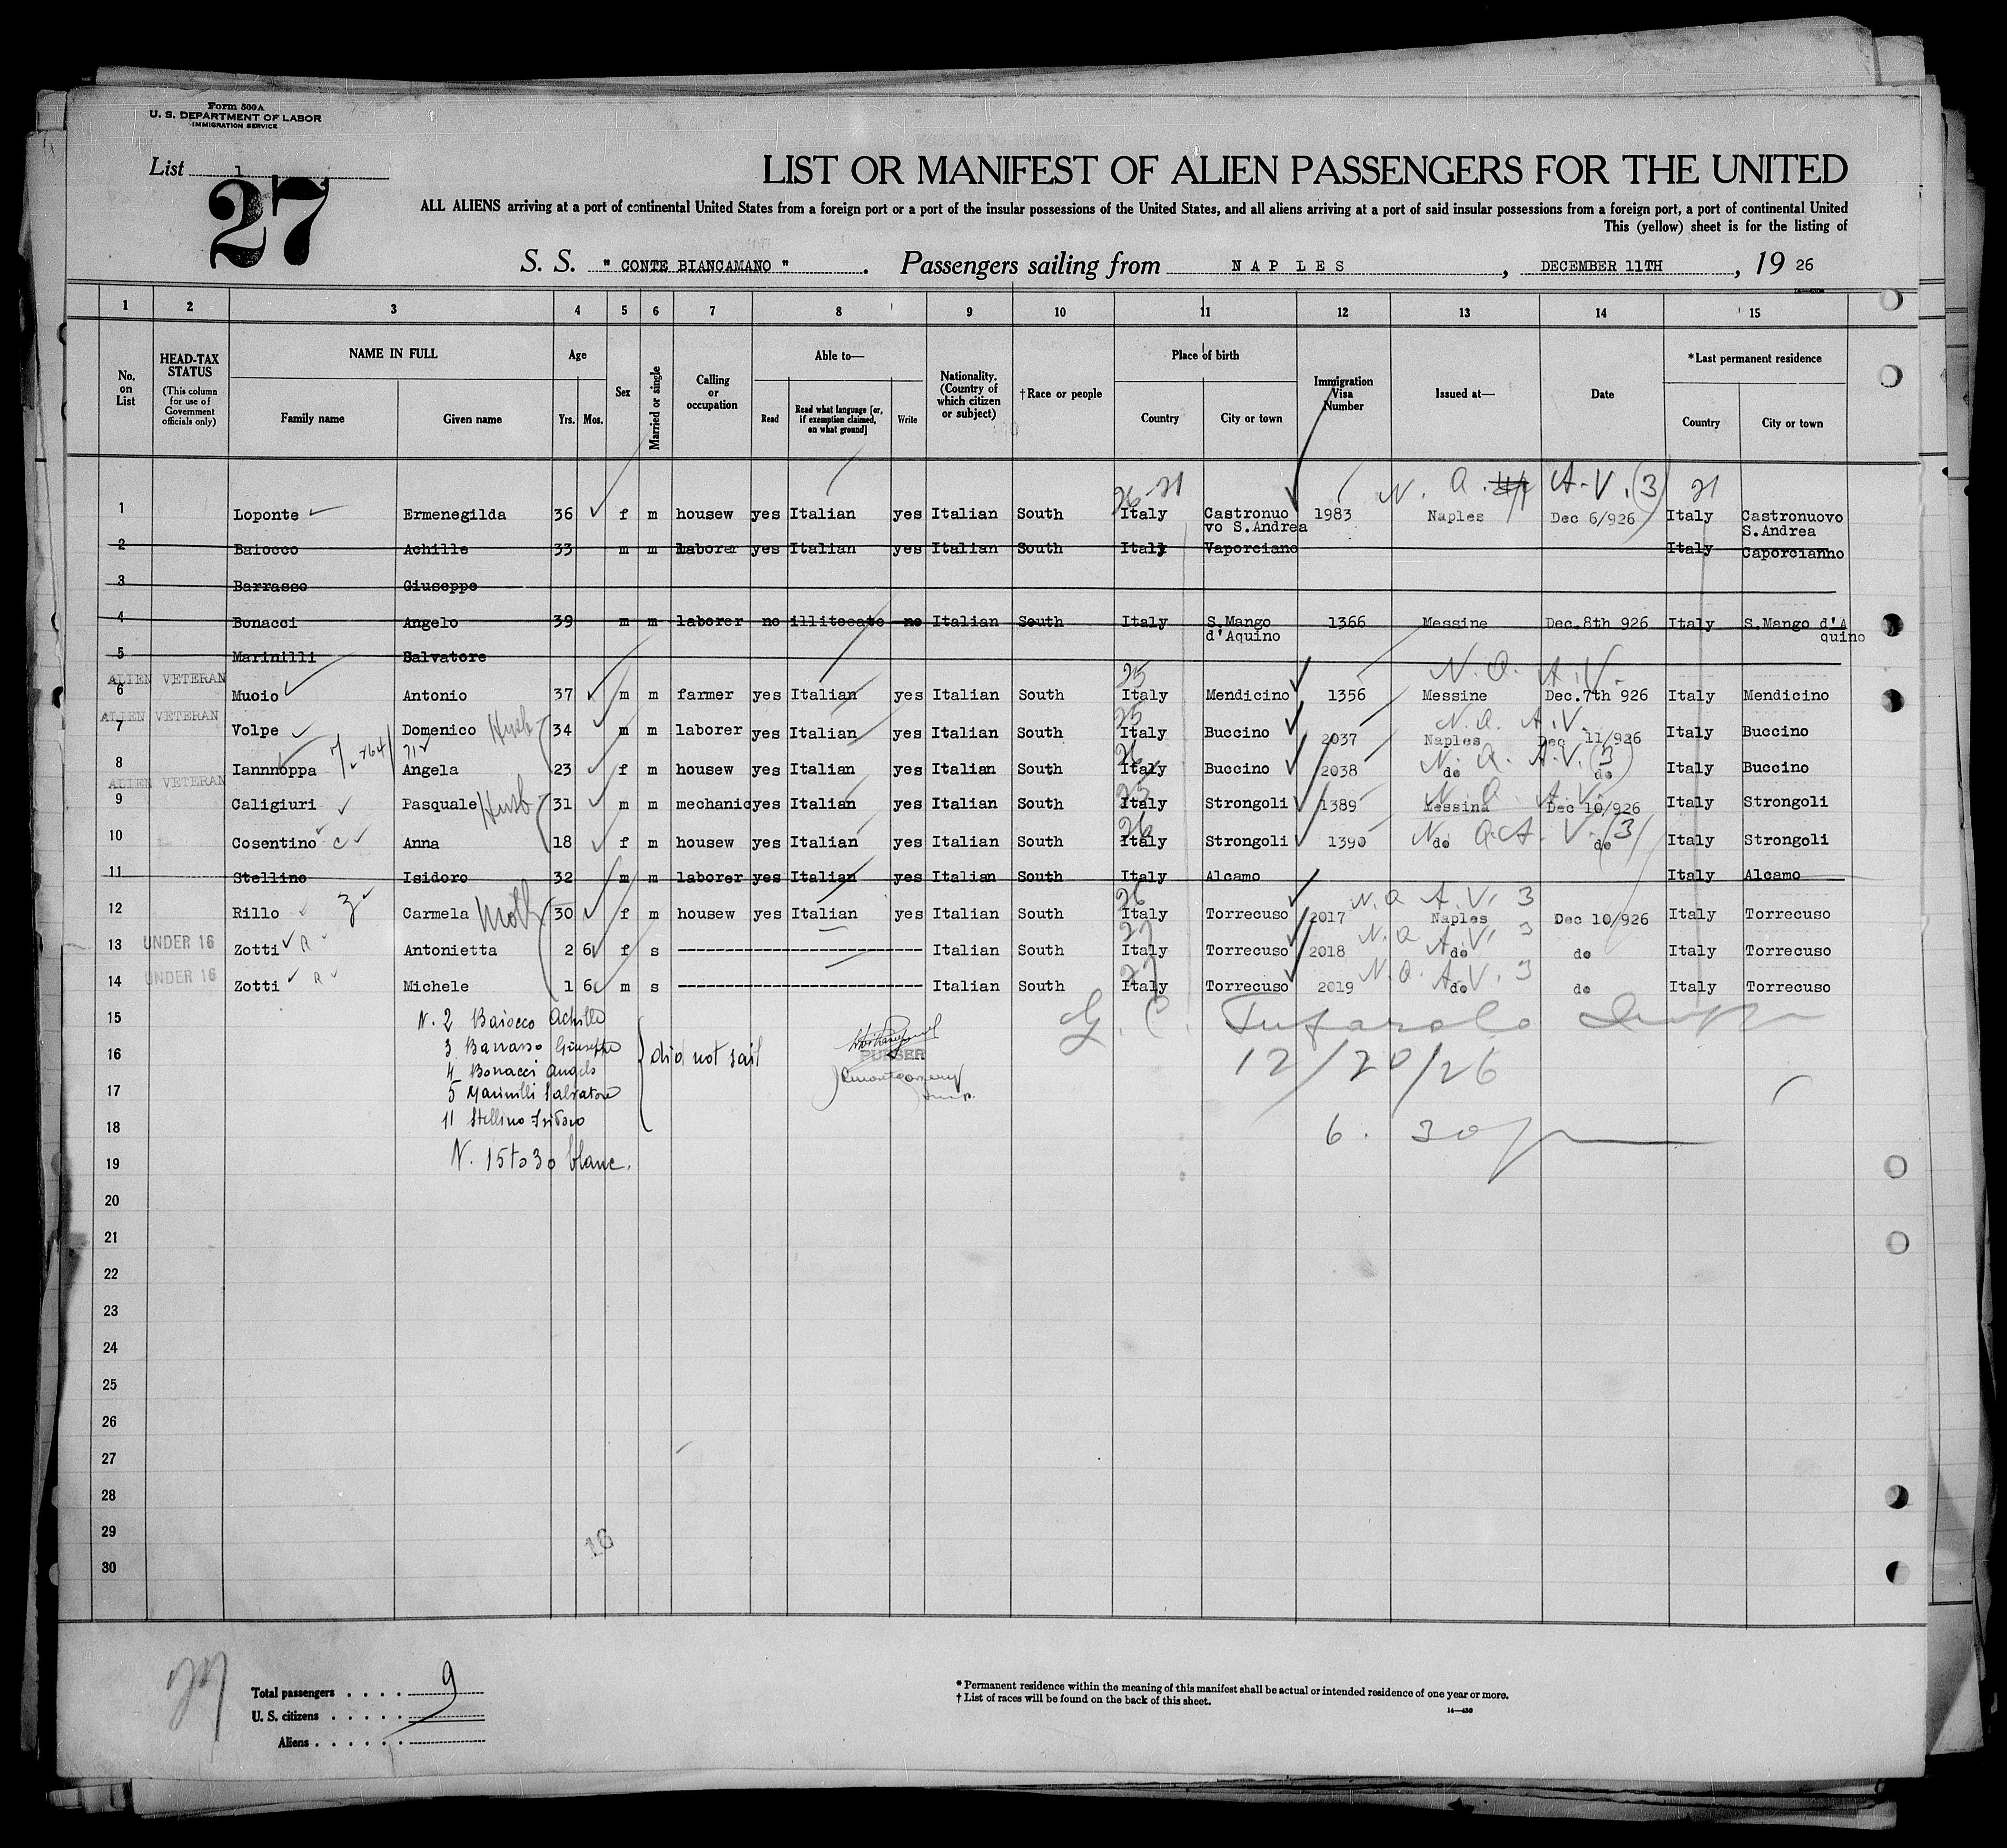 Form 500A
U. S. DEPARTMENT OF LABOR
IMMIGRATION SERVICE
List 1
27
LIST OR MANIFEST OF ALIEN PASSENGERS FOR THE UNITED
ALL ALIENS arriving at a port of continental United States from a foreign port or a port of the insular possessions of the United States, and all aliens arriving at a port of said insular possessions from a foreign port, a port of continental United
This (yellow) sheet is for the listing of
S. S. " CONTE BIANCAMANO " . Passengers sailing from N A P L E S , DECEMBER 11TH , 19 26
1 2 3 4 5 6 7 8 9 10 11 12 13 14 15
No. on List
HEAD-TAX STATUS
(This column for use of Government officials only)
NAME IN FULL
Family name Given name
Age
Yrs. Mos.
Sex
Married or single
Calling or occupation
Able to—
Read
Read what language [or, if exemption claimed, on what ground]
Write
Nationality. (Country of which citizen or subject)
†Race or people
Place of birth
Country City or town
Immigration Visa Number
Issued at—
Date
*Last permanent residence
Country City or town
26-21 N. A. A.V. (3) 21
1 Loponte Ermenegilda 36 f m housew yes Italian yes Italian South Italy Castronuo 1983 Naples Dec 6/926 Italy Castronuovo
vo S.Andrea S.Andrea
2 Baiocco Achille 33 m m laborer yes Italian yes Italian South Italy Vaporciano Italy Caporcianno
3 Barrasso Giuseppe
4 Bonacci Angelo 39 m m laborer no illitecate no Italian South Italy S.Mango 1366 Messine Dec.8th 926 Italy S.Mango d'A
d'Aquino quino
5 Marinilli Salvatore
25 N. A. A.V.
ALIEN VETERAN
6 Muoio Antonio 37 m m farmer yes Italian yes Italian South Italy Mendicino 1356 Messine Dec.7th 926 Italy Mendicino
ALIEN VETERAN
25 N. A. A.V.
7 Volpe Domenico Husb 34 m m laborer yes Italian yes Italian South Italy Buccino 2037 Naples Dec 11/926 Italy Buccino
26 N. A. A.V. (3)
8 Iannnoppa Angela 23 f m housew yes Italian yes Italian South Italy Buccino 2038 do do Italy Buccino
ALIEN VETERAN
25 N. A. A.V.
9 Caligiuri Pasquale Husb 31 m m mechanic yes Italian yes Italian South Italy Strongoli 1389 Messina Dec 10/926 Italy Strongoli
26 N. A. A. V. (3)
10 Cosentino c Anna 18 f m housew yes Italian yes Italian South Italy Strongoli 1390 do do Italy Strongoli
11 Stellino Isidoro 32 m m laborer yes Italian yes Italian South Italy Alcamo Italy Alcamo
26 N. A A.V. 3
12 Rillo Z Carmela Moth 30 f m housew yes Italian yes Italian South Italy Torrecuso 2017 Naples Dec 10/926 Italy Torrecuso
27 N. A A.V. 3
13 UNDER 16 Zotti R Antonietta 2 6 f s Italian South Italy Torrecuso 2018 do do Italy Torrecuso
27 N. A. A.V. 3
14 UNDER 16 Zotti R Michele 1 6 m s Italian South Italy Torrecuso 2019 do do Italy Torrecuso
15 N. 2 Baiocco Achille
16 3 Barrasso Giuseppe did not sail PURSER 12/20/26
4 Bonacci Angelo
17 5 Marinilli Salvatore
18 11 Stellino Isidoro 6.30 pm
19 N. 15 to 30 blanc.
20
21
22
23
24
25
26
27
28
29
16
30
27
Total passengers 9
U. S. citizens
Aliens
* Permanent residence within the meaning of this manifest shall be actual or intended residence of one year or more.
† List of races will be found on the back of this sheet.
14—430